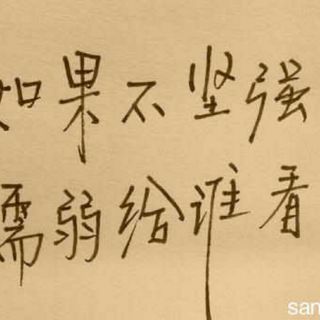 如果不坚强
懦弱给谁看
san